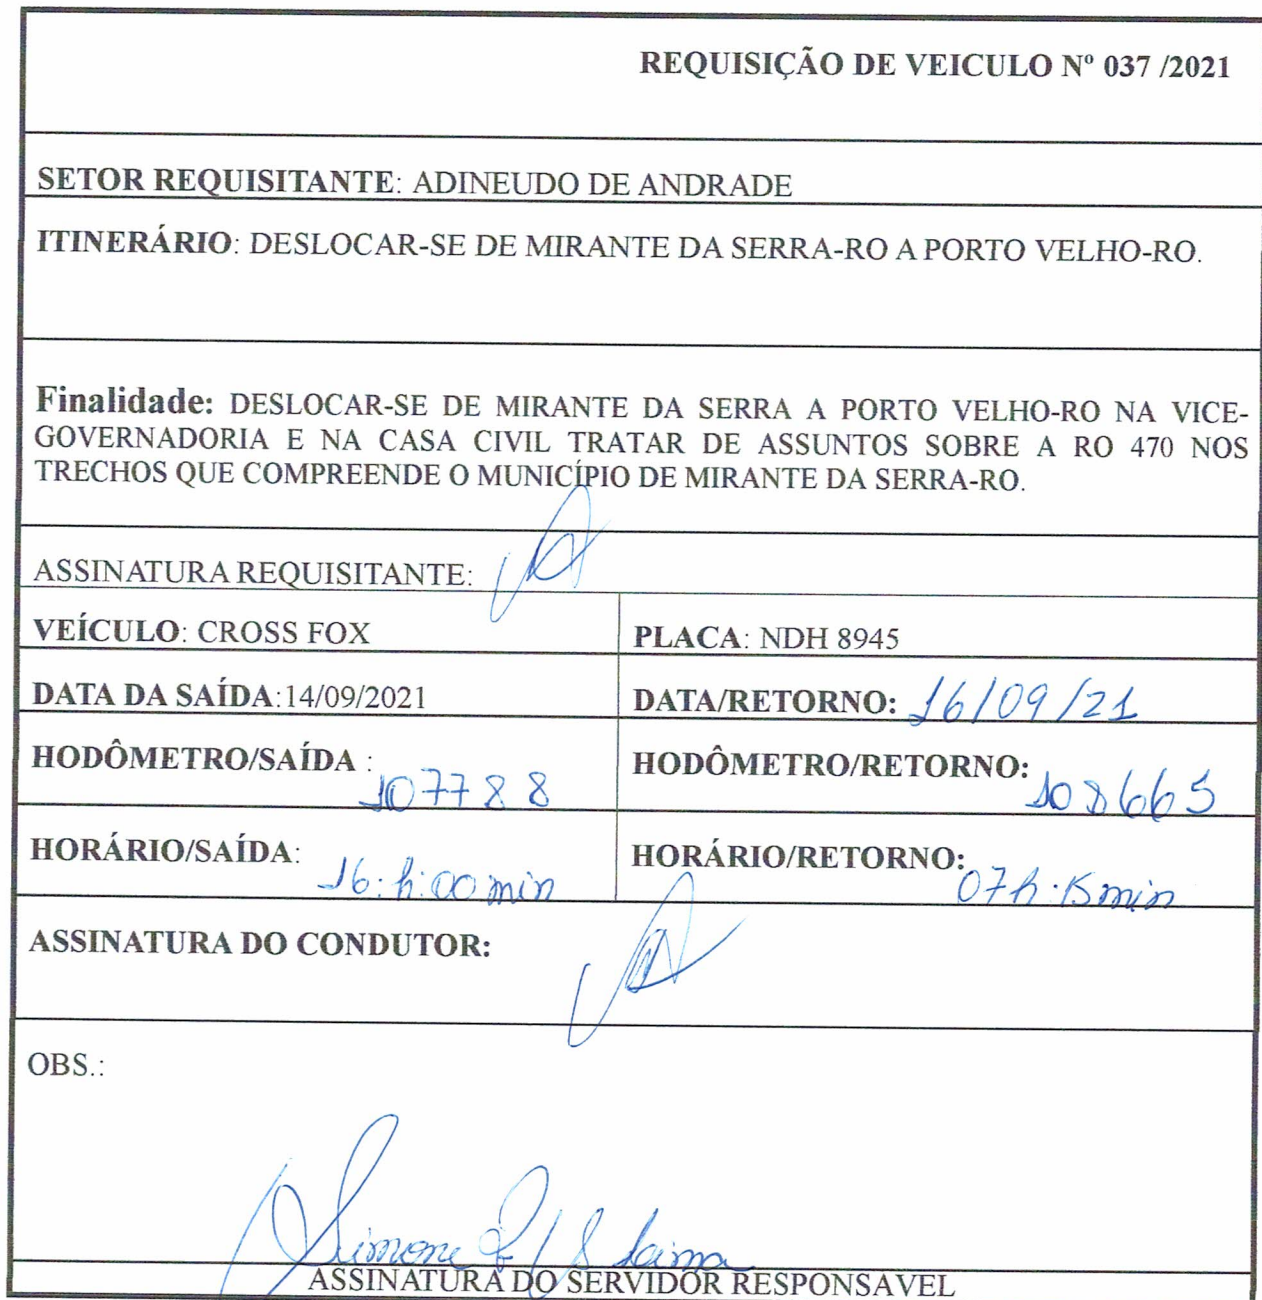 REQUISIÇÃO DE VEICULO Nº 037 /2021
SETOR REQUISITANTE: ADINEUDO DE ANDRADE
ITINERÁRIO: DESLOCAR-SE DE MIRANTE DA SERRA-RO A PORTO VELHO-RO.
Finalidade: DESLOCAR-SE DE MIRANTE DA SERRA A PORTO VELHO-RO NA VICE-
GOVERNADORIA E NA CASA CIVIL TRATAR DE ASSUNTOS SOBRE A RO 470 NOS
TRECHOS QUE COMPREENDE O MUNICÍPIO DE MIRANTE DA SERRA-RO.
ASSINATURA REQUISITANTE:
VEÍCULO: CROSS FOX
PLACA: NDH 8945
DATA DA SAÍDA:14/09/2021
DATA/RETORNO: 16/09/21
HODÔMETRO/SAÍDA : 107788
HODÔMETRO/RETORNO: 108665
HORÁRIO/SAÍDA: 16:h:00 min
HORÁRIO/RETORNO: 07h:15min
ASSINATURA DO CONDUTOR:
OBS.:
Simone
ASSINATURA DO SERVIDOR RESPONSAVEL